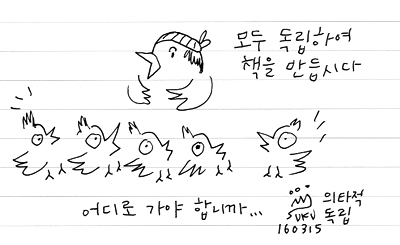 모두 독립하여
책을 만듭시다
어디로 가야 합니까...
의타적
독립
160315